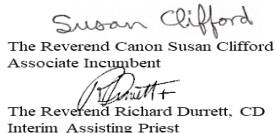 Susan Clifford
The Reverend Canon Susan Clifford
Associate Incumbent
The Reverend Richard Durrett, CD
Interim Assisting Priest